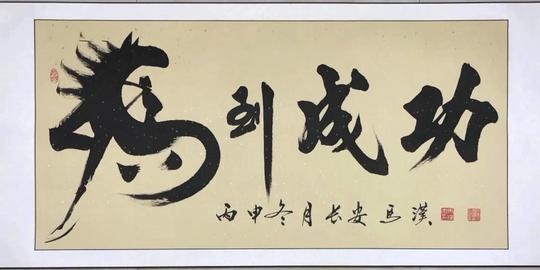 馬到成功
丙申冬月长安马漢